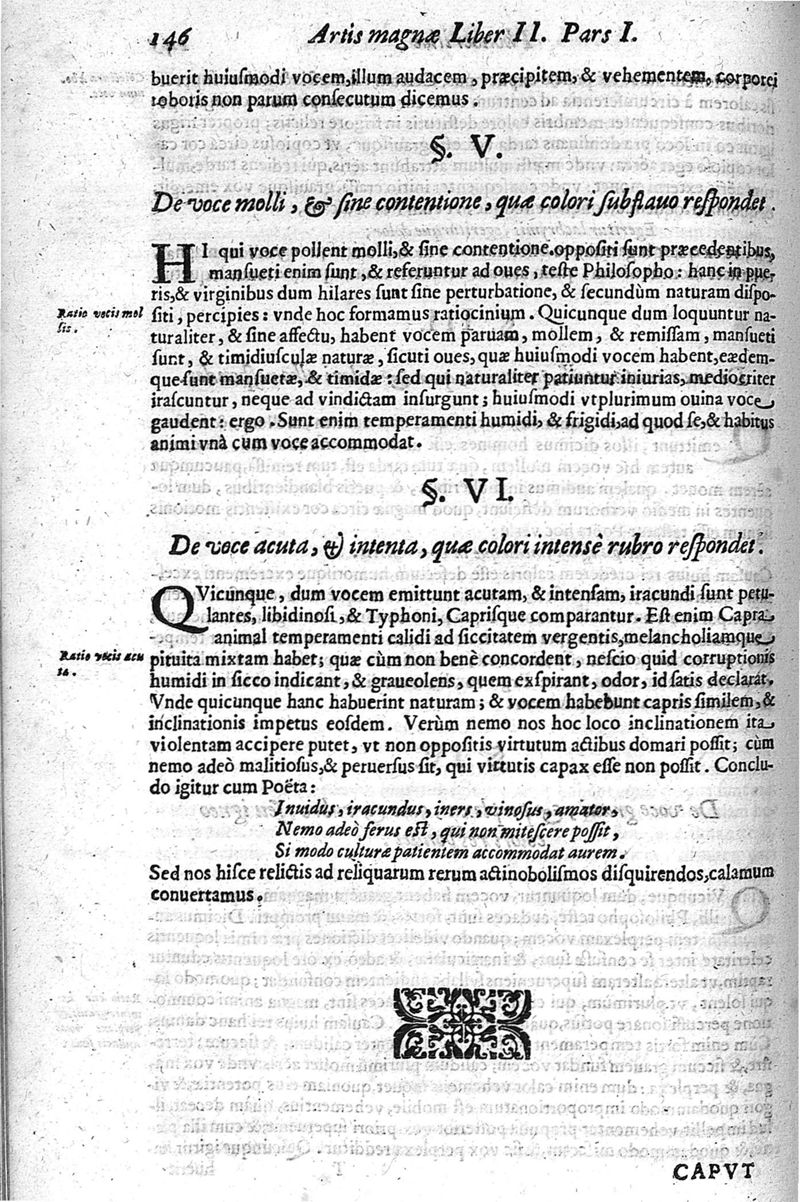 146 Artis magnæ Liber II. Pars I.
buerit huiusmodi vocem, illum audacem, præcipitem, & vehementem, corporei
roboris non parum consecutum dicemus.
§. V.
De voce molli, & sine contentione, quæ colori subflauo respondet.
HI qui voce pollent molli, & sine contentione. oppositi sunt præcedentibus,
mansueti enim sunt, & referuntur ad oues, teste Philosopho: hanc in pue-
ris, & virginibus dum hilares sunt sine perturbatione, & secundùm naturam dispo-
Ratio vocis mol
lis.
siti, percipies: vnde hoc formamus ratiocinium. Quicunque dum loquuntur na-
turaliter, & sine affectu, habent vocem paruam, mollem, & remissam, mansueti
sunt, & timidiusculæ naturæ, sicuti oues, quæ huiusmodi vocem habent, eædem-
que sunt mansuetæ, & timidæ: sed qui naturaliter patiuntur iniurias, mediocriter
irascuntur, neque ad vindictam insurgunt; huiusmodi vtplurimum ouina voce
gaudent: ergo. Sunt enim temperamenti humidi, & frigidi, ad quod se, & habitus
animi vnà cum voce accommodat.
§. VI.
De voce acuta, & intenta, quæ colori intensè rubro respondet.
QVicunque, dum vocem emittunt acutam, & intensam, iracundi sunt petu-
lantes, libidinosi, & Typhoni, Caprisque comparantur. Est enim Capra
animal temperamenti calidi ad siccitatem vergentis, melancholiamque
Ratio vocis acu
ta.
pituita mixtam habet; quæ cùm non benè concordent, nescio quid corruptionis
humidi in sicco indicant, & graueolens, quem exspirant, odor, id satis declarat.
Vnde quicunque hanc habuerint naturam; & vocem habebunt capris similem, &
inclinationis impetus eosdem. Verùm nemo nos hoc loco inclinationem ita
violentam accipere putet, vt non oppositis virtutum actibus domari possit; cùm
nemo adeò malitiosus, & peruersus sit, qui virtutis capax esse non possit. Conclu-
do igitur cum Poëta:
Inuidus, iracundus, iners, vinosus, amator,
Nemo adeò ferus est, qui non mitescere possit,
Si modo culturæ patientem accommodat aurem.
Sed nos hisce relictis ad reliquarum rerum actinobolismos disquirendos, calamum
conuertamus.
CAPVT